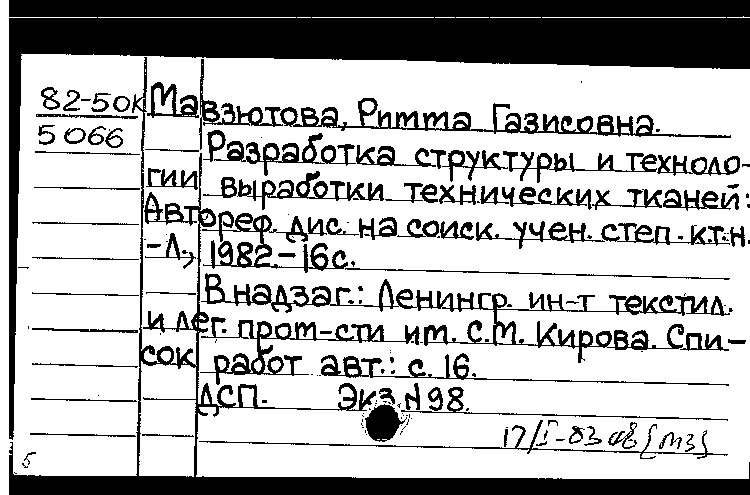 82-50К Мавзютова, Римма Газисовна.
5066 Разработка структуры и техноло-
гии выработки технических тканей:
Автореф. дис. на соиск. учен. степ. к.т.н.
-Л., 1982.-16с.
В надзаг.: Ленингр. ин-т текстил.
и лег. пром-сти им. С.М. Кирова. Спи-
сок работ авт.: с. 16.
ДСП. Экз.№98.
17/I-83
5